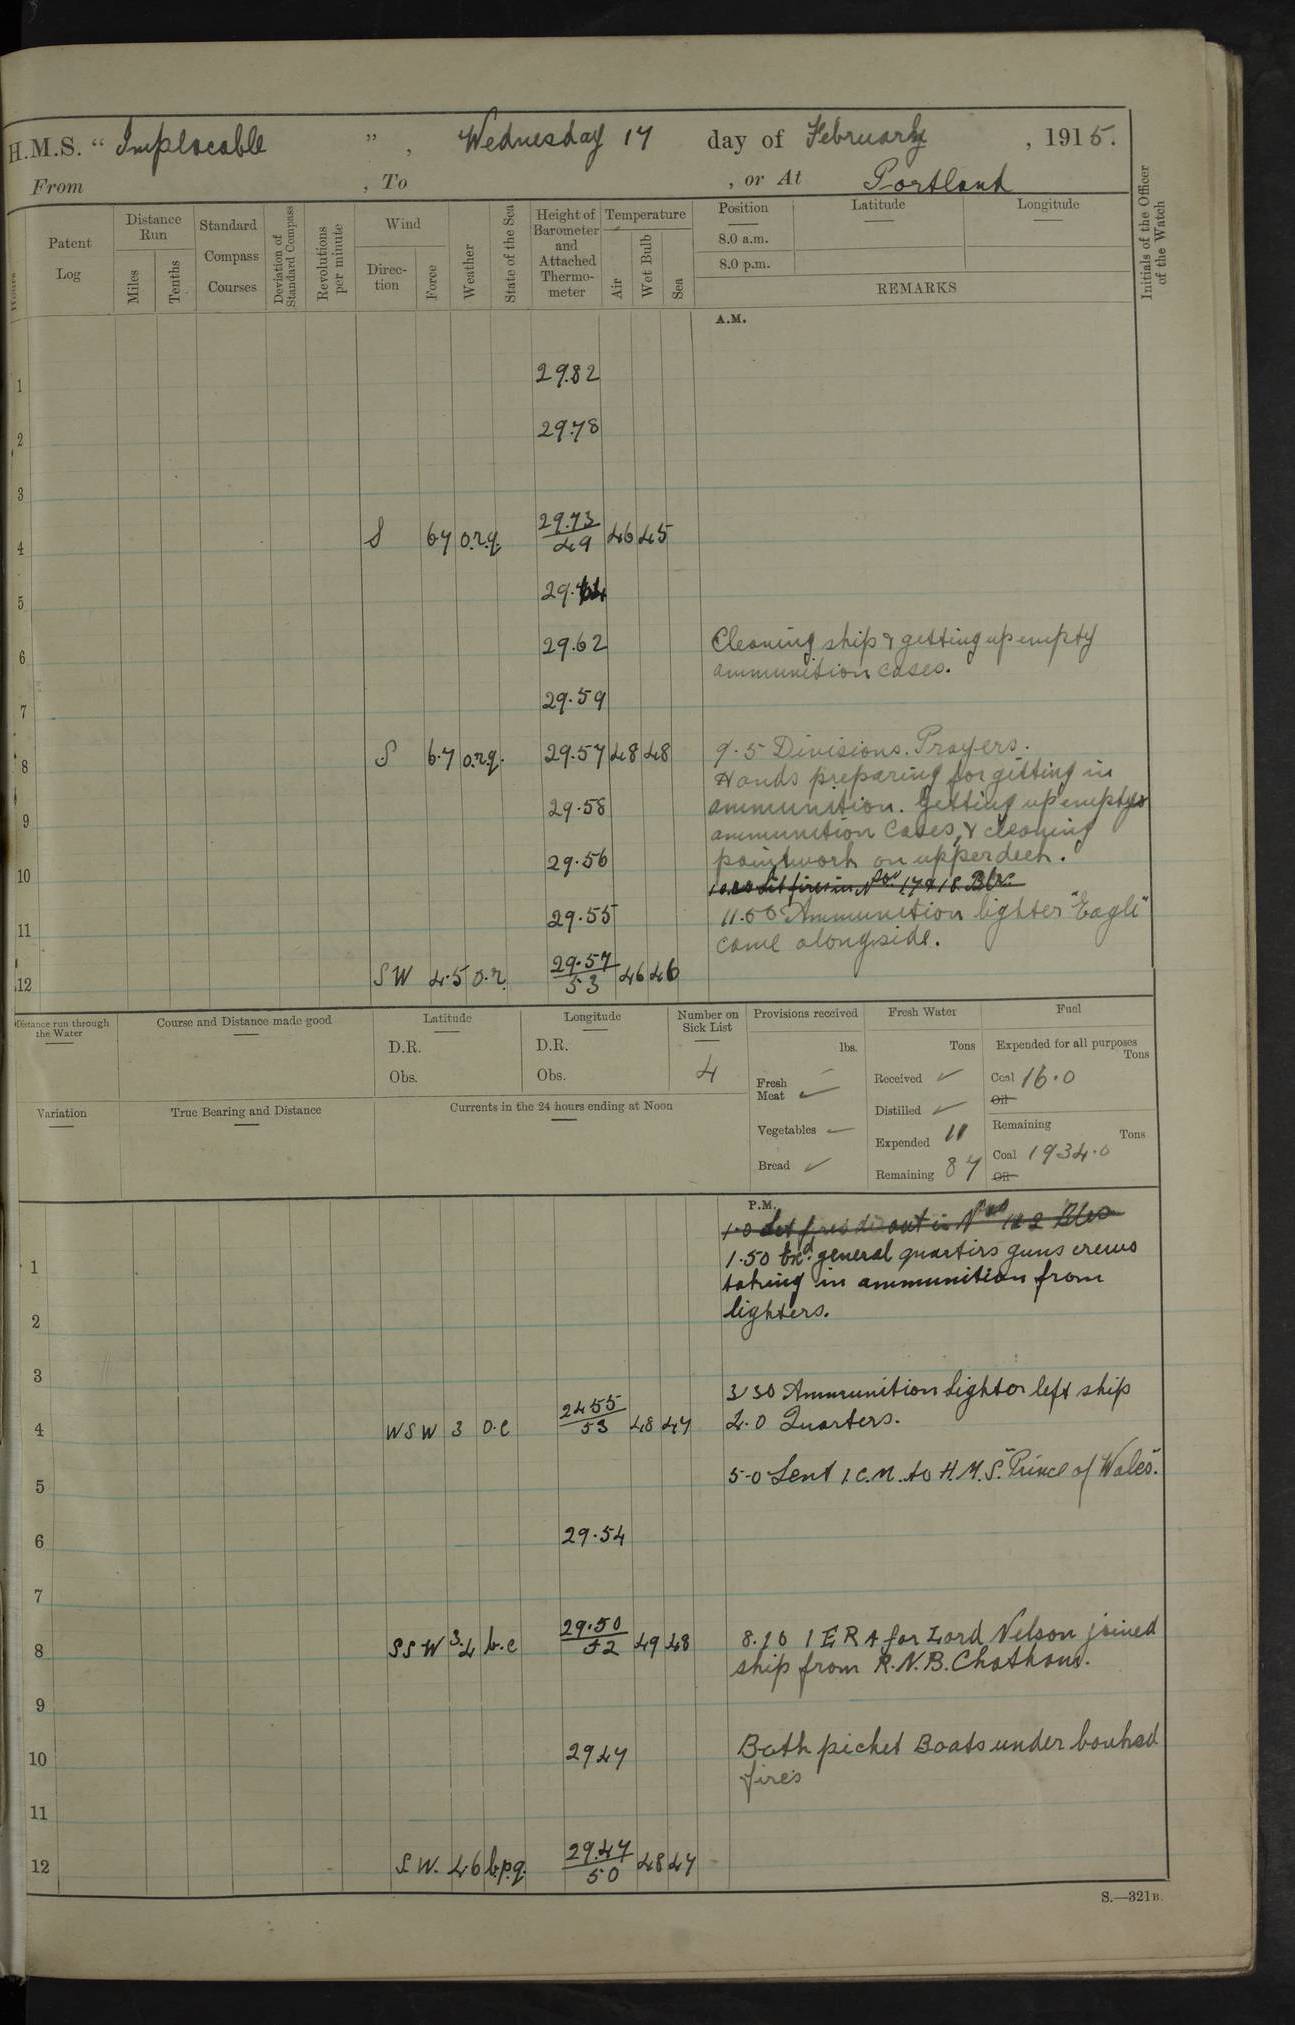 H.M.S. "Implacable", Wednesday 17 day of February, 1915.
From , To , or At Portland
Patent Log
Distance Run
Miles
Tenths
Standard Compass Courses
Deviation of Standard Compass
Revolutions per minute
Wind
Direction
Force
Weather
State of the Sea
Height of Barometer and Attached Thermometer
Temperature
Air
Wet Bulb
Sea
Position
8.0 a.m.
8.0 p.m.
Latitude
Longitude
REMARKS
Initials of the Officer of the Watch
A.M.
1 29.82
2 29.78
3
4 S 6.7 o.r.q. 29.73 49 46 45
5
6 29.62 Cleaning ship & getting up empty
ammunition cases.
7 29.59
8 S 6.7 o.r.q. 29.57 48 48 9.5 Divisions. Prayers.
Hands preparing for getting in
9 29.58 ammunition. Getting up emptys
ammunition cases, & cleaning
10 29.56 paintwork on upper deck.
10.20 Lit fires in Nos 17 & 18 Blrs
11 29.55 11.50 Ammunition lighter "Eagle"
came alongside.
12 SW 4.5 o.r. 29.57 53 46 46
Distance run through the Water
Course and Distance made good
Latitude
D.R.
Obs.
Longitude
D.R.
Obs.
Number on Sick List
4
Provisions received
lbs.
Fresh Meat ✓
Vegetables ✓
Bread ✓
Fresh Water
Tons
Received ✓
Distilled ✓
Expended 11
Remaining 87
Fuel
Expended for all purposes
Tons
Coal 16.0
Oil
Remaining
Tons
Coal 1934.0
Oil
Variation
True Bearing and Distance
Currents in the 24 hours ending at Noon
P.M.
1.0 Let fires die out in Nos 1 & 2 Blrs
1 1.50 Exd general quarters guns crews
taking in ammunition from
2 lighters.
3 3.30 Ammunition Lighter left ship
4 WSW 3 o.c 2455 53 48 47 4.0 Quarters.
5 5.0 Sent 1 C.M. to H.M.S. "Prince of Wales".
6 29.54
7
8 SSW 3.4 b.c 29.50 52 49 48 8.10 1 E R A for Lord Nelson joined
ship from R.N.B. Chatham.
9
10 2947 Both picket Boats under banked
fires
11
12 S.W. 4.6 b.p.q. 29.47 50 48 47
S.—321B.